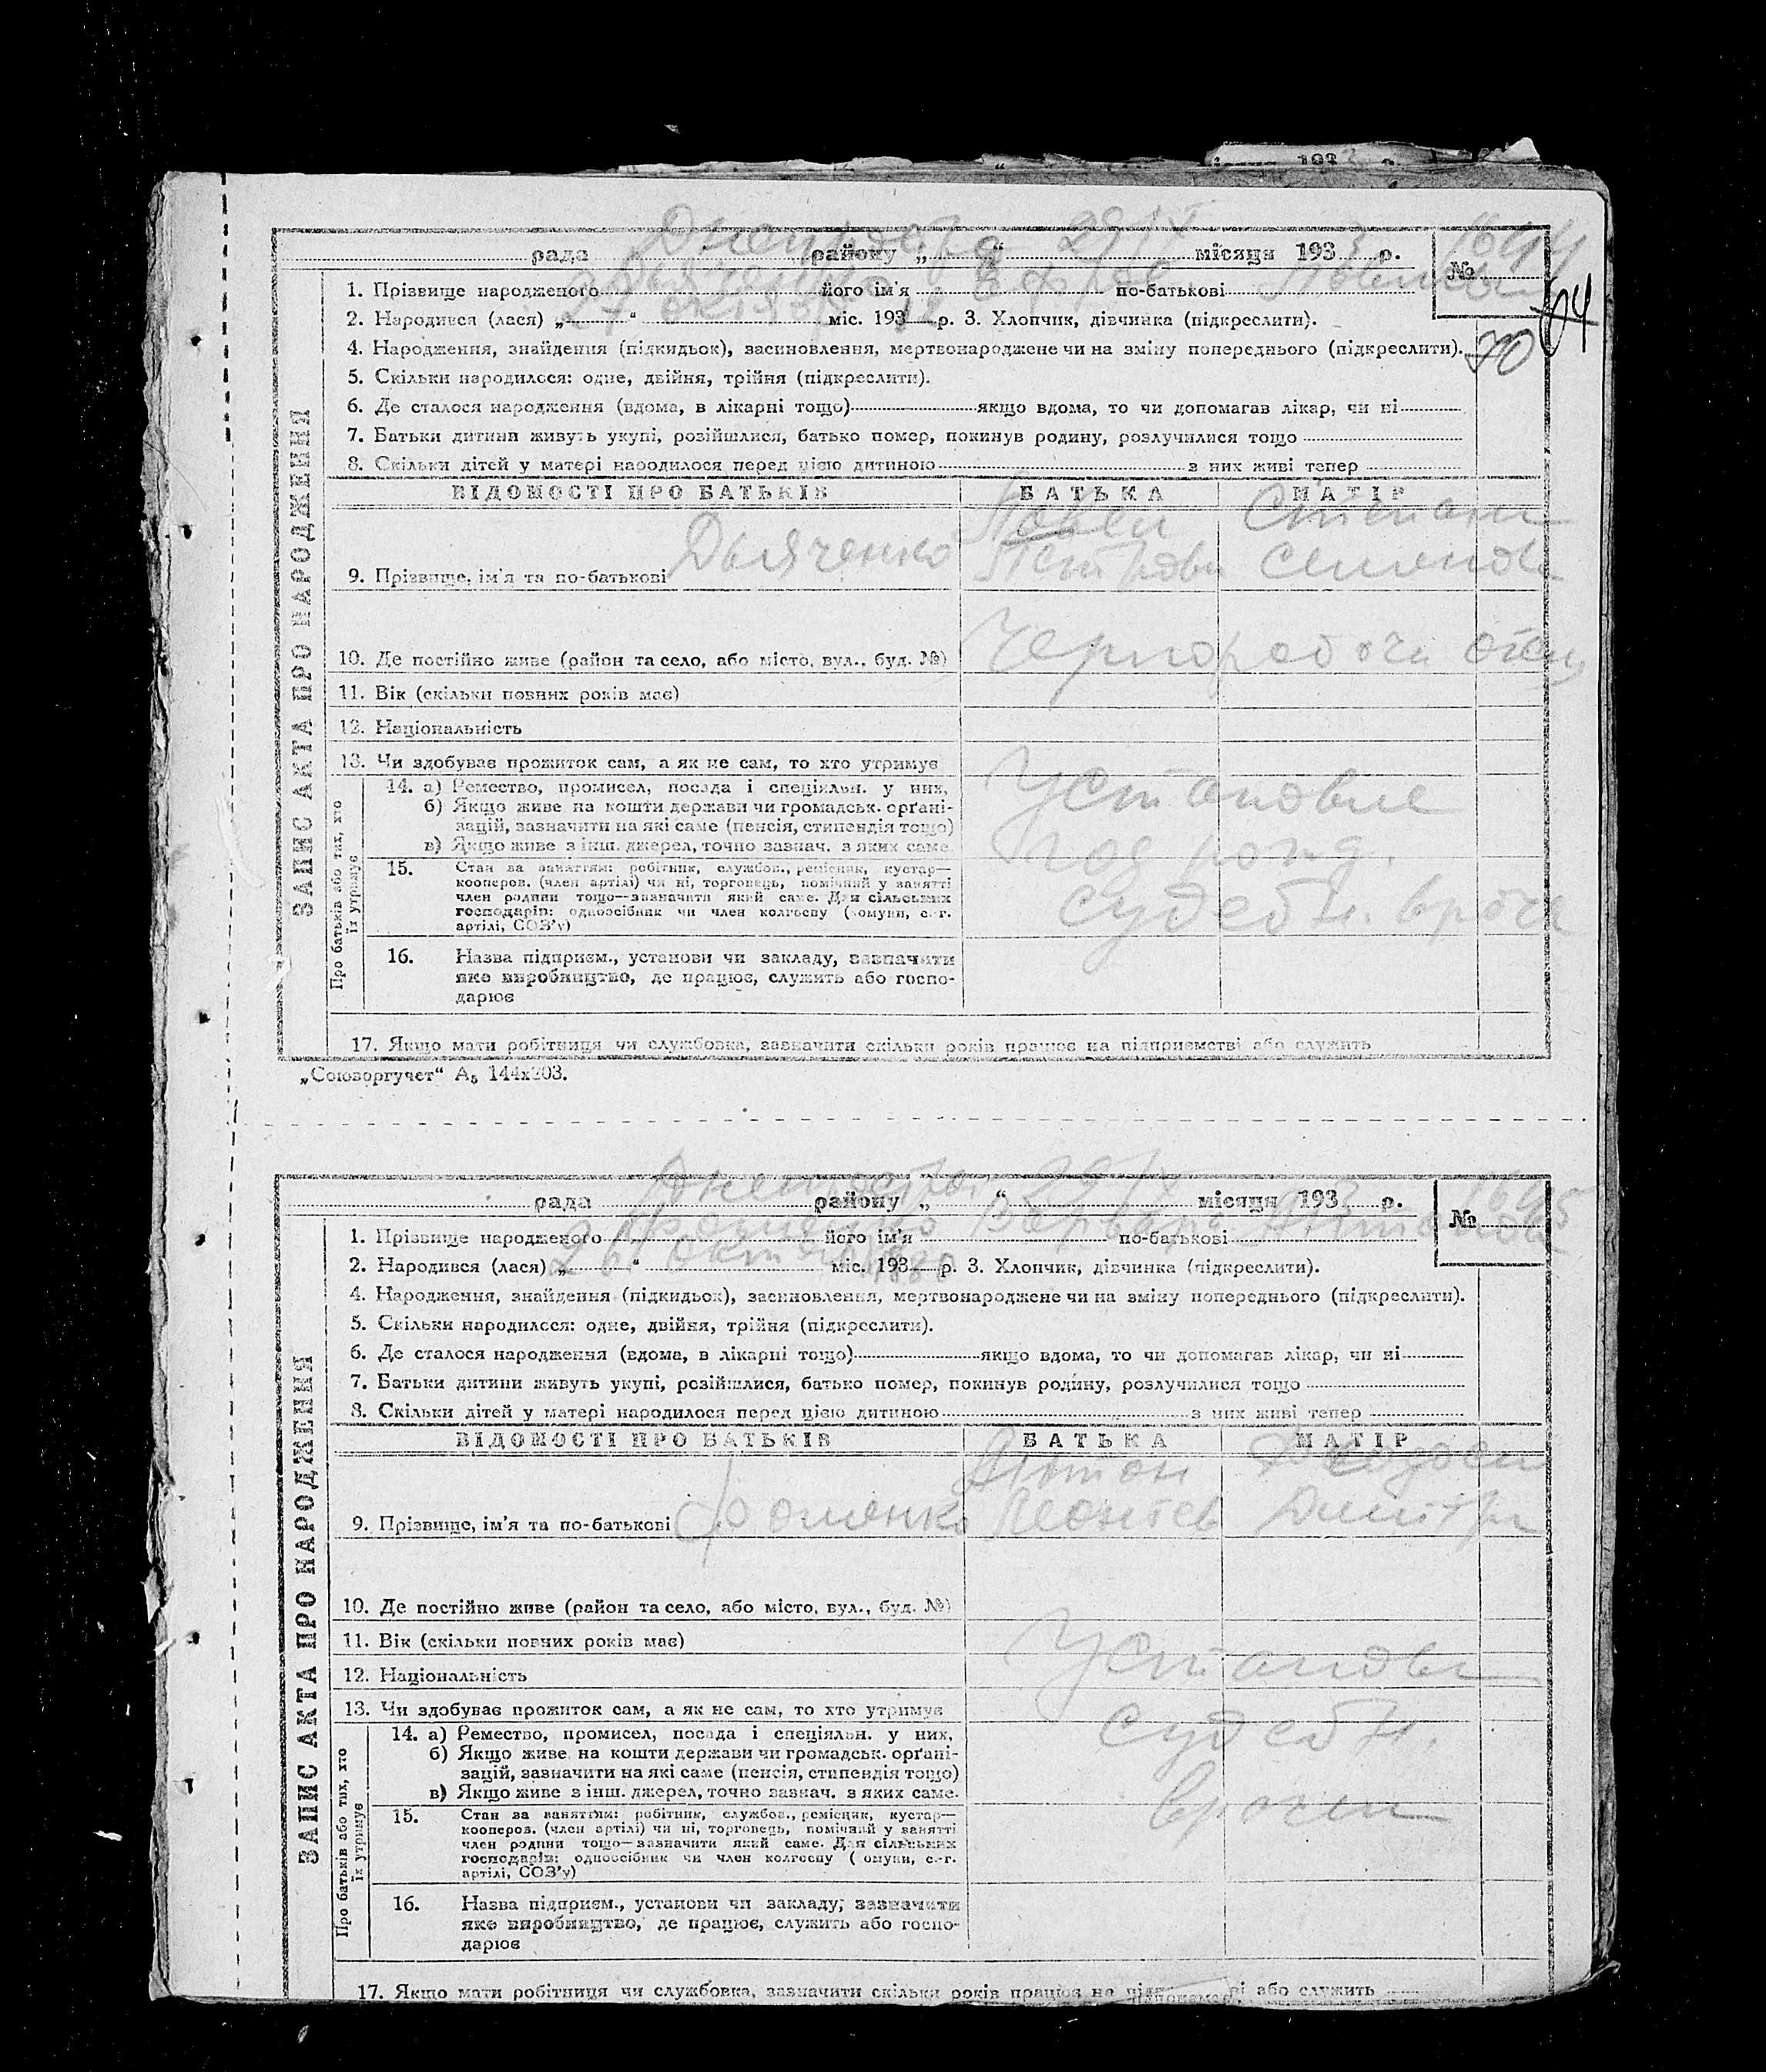 рада Днепропетр району „ 29 IX “ місяця 193 3 р.
№ 1644
64
70
ЗАПИС АКТА ПРО НАРОДЖЕННЯ
1. Прізвище народженого Дьяченко його ім'я по-батькові Павлов
2. Народився (лася) „ 27 “ октября міс. 193 р. 3. Хлопчик, дівчинка (підкреслити).
4. Народження, знайдення (підкидьок), засиновлення, мертвонароджене чи на зміну попереднього (підкреслити).
5. Скільки народилося: одне, двійня, трійня (підкреслити).
6. Де сталося народження (вдома, в лікарні тощо) якщо вдома, то чи допомагав лікар, чи ні
7. Батьки дитини живуть укупі, розійшлися, батько помер, покинув родину, розлучилися тощо
8. Скільки дітей у матері народилося перед цією дитиною з них живі тепер
ВІДОМОСТІ ПРО БАТЬКІВ БАТЬКА МАТІР
Павел Степани
9. Прізвище, ім'я та по-батькові Дьяченко Петрови Семенов
10. Де постійно живе (район та село, або місто, вул., буд. №) Чернорабочи отец
11. Вік (скільки повних років має)
12. Національність
13. Чи здобуває прожиток сам, а як не сам, то хто утримує
Про батьків або тих, хто їх утримує
14. а) Ремество, промисел, посада і спеціяльн. у них, Установле
б) Якщо живе на кошти держави чи громадськ. орґані-
зацій, зазначити на які саме (пенсія, стипендія тощо)
в) Якщо живе з інш. джерел, точно зазнач. з яких саме. год рожд.
15. Стан за заняттям: робітник, службов., ремісник, кустар—
кооперов. (член артілі) чи ні, торговець, помічний у занятті
член родини тощо—зазначити який саме. Для сільських Судебн. врачи
господарів: одноосібник чи член колгоспу (комуни, с.-г.
артілі, СОЗ'у)
16. Назва підприєм., установи чи закладу, зазначити
яке виробництво, де працює, служить або госпо-
дарює
17. Якщо мати робітниця чи службовка, зазначити скільки років працює на підприємстві або служить
„Союзоргучет“ А₅ 144х203.
рада Днепропетр району „ 29 IX “ місяця 193 3 р.
№ 1645
ЗАПИС АКТА ПРО НАРОДЖЕННЯ
1. Прізвище народженого Фоменко його ім'я Варвара по-батькові Антонов
2. Народився (лася) „ 26 “ октября міс. 193 1880 р. 3. Хлопчик, дівчинка (підкреслити).
4. Народження, знайдення (підкидьок), засиновлення, мертвонароджене чи на зміну попереднього (підкреслити).
5. Скільки народилося: одне, двійня, трійня (підкреслити).
6. Де сталося народження (вдома, в лікарні тощо) якщо вдома, то чи допомагав лікар, чи ні
7. Батьки дитини живуть укупі, розійшлися, батько помер, покинув родину, розлучилися тощо
8. Скільки дітей у матері народилося перед цією дитиною з них живі тепер
ВІДОМОСТІ ПРО БАТЬКІВ БАТЬКА МАТІР
Антон Феодоси
9. Прізвище, ім'я та по-батькові Фоменко Леонтев Дмитри
10. Де постійно живе (район та село, або місто, вул., буд. №)
11. Вік (скільки повних років має)
12. Національність Установл
13. Чи здобуває прожиток сам, а як не сам, то хто утримує
Про батьків або тих, хто їх утримує
14. а) Ремество, промисел, посада і спеціяльн. у них, Судебн.
б) Якщо живе на кошти держави чи громадськ. орґані-
зацій, зазначити на які саме (пенсія, стипендія тощо)
в) Якщо живе з інш. джерел, точно зазнач. з яких саме.
15. Стан за заняттям: робітник, службов., ремісник, кустар— врачем
кооперов. (член артілі) чи ні, торговець, помічний у занятті
член родини тощо—зазначити який саме. Для сільських
господарів: одноосібник чи член колгоспу (комуни, с.-г.
артілі, СОЗ'у)
16. Назва підприєм., установи чи закладу, зазначити
яке виробництво, де працює, служить або госпо-
дарює
17. Якщо мати робітниця чи службовка, зазначити скільки років працює на або служить